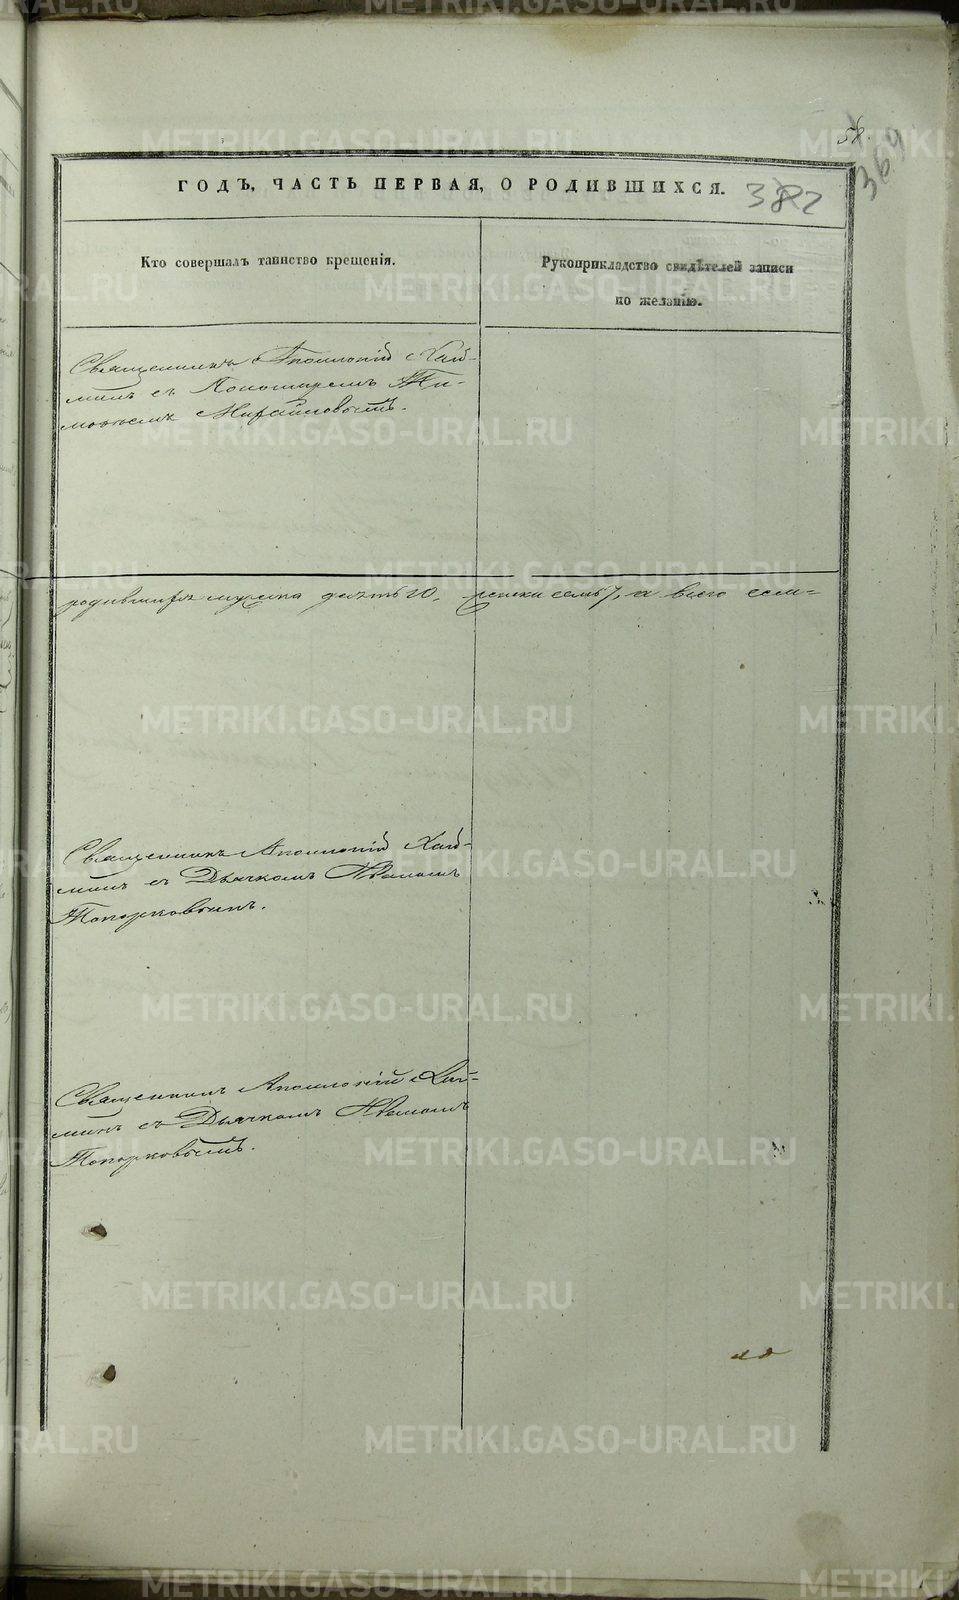 58.
369
ГОДЪ, ЧАСТЬ ПЕРВАЯ, О РОДИВШИХСЯ. 382
Кто совершалъ таинство крещенія.
Рукоприкладство свидѣтелей записи
по желанію.
Священникъ Аполлоній Хай-
минъ съ Пономаремъ Ти-
моѳеемъ
родившихся мужеска десять 10, женска семь 7, а всего сем=
Священникъ Аполлоній Хай-
минъ съ Дьячкомъ
Топорковымъ.
Священникъ Аполлоній Хай=
минъ съ Дьячкомъ
Топорковымъ.
METRIKI.GASO-URAL.RU